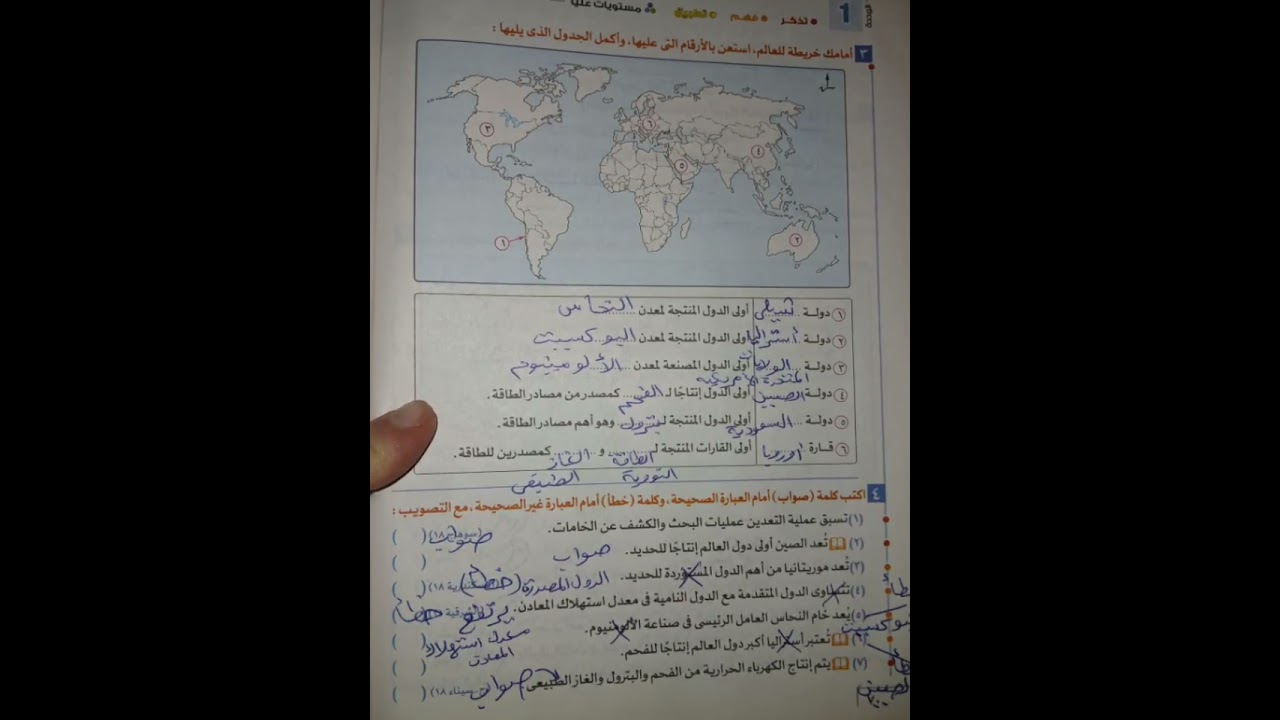 1 • تذكر • فهم • تطبيق • مستويات عليا
٣ أمامك خريطة للعالم، استعن بالأرقام التى عليها، وأكمل الجدول الذى يليها :
٣
٦
٤
٥
١
٢
١ دولة تشيلى أولى الدول المنتجة لمعدن النحاس
٢ دولة أستراليا أولى الدول المنتجة لمعدن البوكسيت
٣ دولة الولايات أولى الدول المصنعة لمعدن الألومنيوم
المتحدة الأمريكية
٤ دولة الصين أولى الدول إنتاجًا لـ الفحم كمصدر من مصادر الطاقة.
٥ دولة السعودية أولى الدول المنتجة لـ بترول وهو أهم مصادر الطاقة.
٦ قارة أوروبا أولى القارات المنتجة لـ الطاقة و الغاز كمصدرين للطاقة.
النووية الطبيعى
٤ اكتب كلمة (صواب) أمام العبارة الصحيحة، وكلمة (خطأ) أمام العبارة غير الصحيحة، مع التصويب :
(١) تسبق عملية التعدين عمليات البحث والكشف عن الخامات. صواب ( )
(٢) تُعد الصين أولى دول العالم إنتاجًا للحديد. صواب ( )
(٣) تُعد موريتانيا من أهم الدول المستوردة للحديد. الدول المصدرة (خطأ) ( )
(٤) تتساوى الدول المتقدمة مع الدول النامية فى معدل استهلاك المعادن. يرتفع خطأ ( )
(٥) يُعد خام النحاس العامل الرئيسى فى صناعة الألومنيوم. معدل استهلاك ( )
المعادن
(٦) تُعتبر أستراليا أكبر دول العالم إنتاجًا للفحم. ( )
(٧) يتم إنتاج الكهرباء الحرارية من الفحم والبترول والغاز الطبيعى. صواب سيناء ١٨) ( )